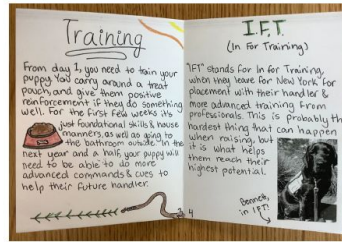 Training
From day 1, you need to train your
puppy. You carry around a treat
pouch and give them positive
reinforcement if they do something
well. For the first few weeks it's
just foundational skills & house
manners, as well as going to
the bathroom outside. In the
next year and a half, your puppy will
need to be able to do more
advanced commands & cues to
help their future handler.
3
I.F.T.
(In For Training)
"IFT" stands for In for Training,
when they leave for New York for
placement with their handler &
more advanced training from
professionals. This is probably the
hardest thing that can happen
when raising, but
it is what helps
them reach their
highest potential.
Bennett,
in IFT!
4